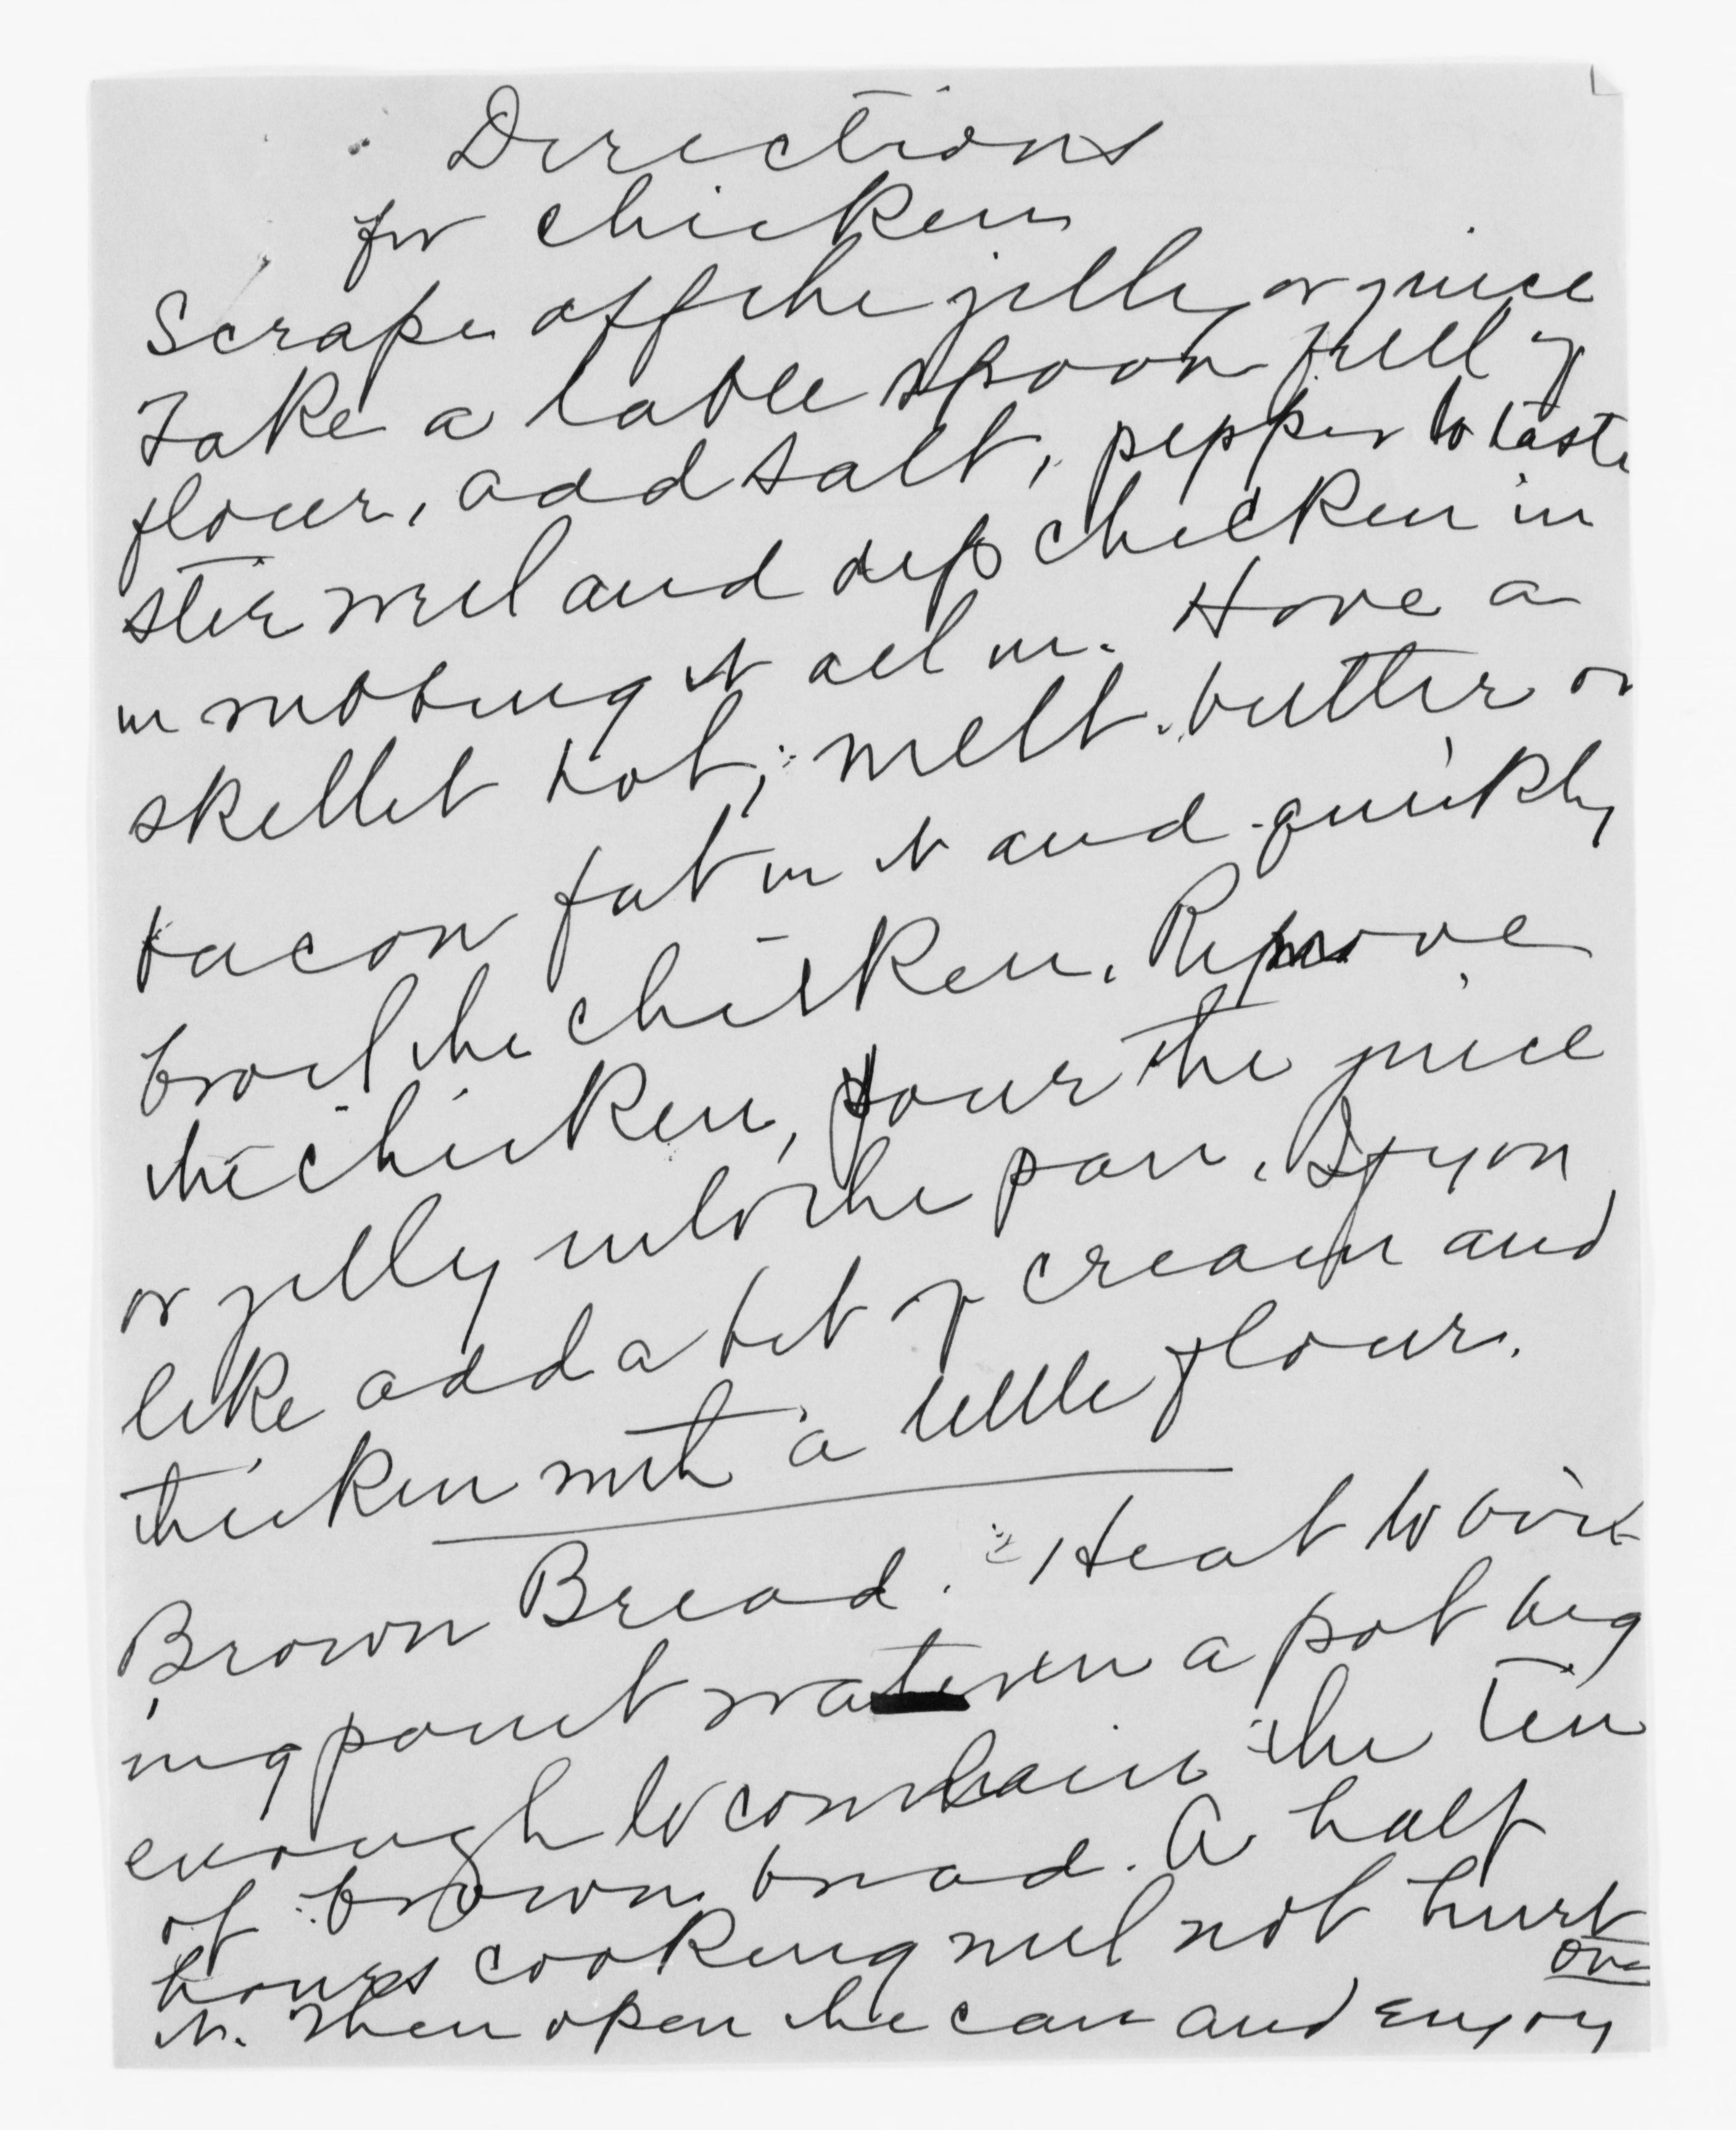 Directions
for chicken
Scrape off the jelly or juice
Take a table spoon full of
flour, add salt, pepper to taste
stir well and dip chicken in
in rubbing it all in. Have a
skillet hot, melt butter or
bacon fat in it and quickly
broil the chicken. Remove
the chicken, pour the juice
or jelly into the pan. If you
like add a bit of cream and
thicken with a little flour.
Brown Bread. Heat to boil
ing point water in a pot big
enough to contain the tin
of brown bread. A half
hours cooking will not hurt
over
it. Then open the can and enjoy